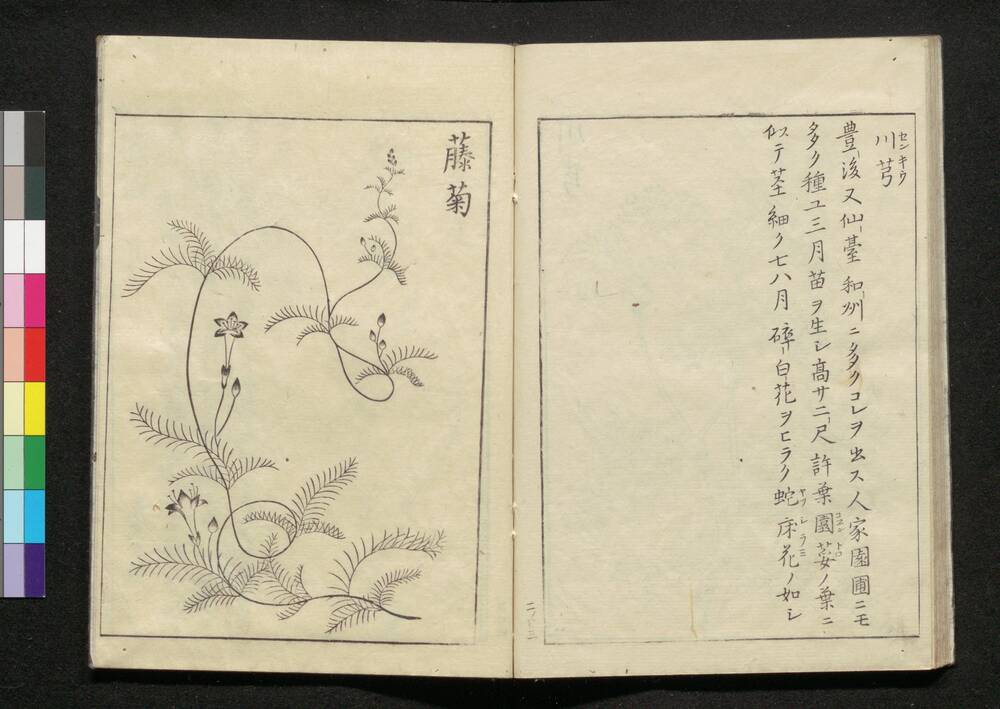 川芎
センキウ
豊後又仙臺和州ニ多クコレヲ出ス人家園圃ニモ
多ク種ユ三月苗ヲ生シ高サ二尺許葉園荽ノ葉ニ
似テ茎細ク七八月碎白花ヲヒラク蛇床花ノ如シ
ヤブシラミ
藤菊